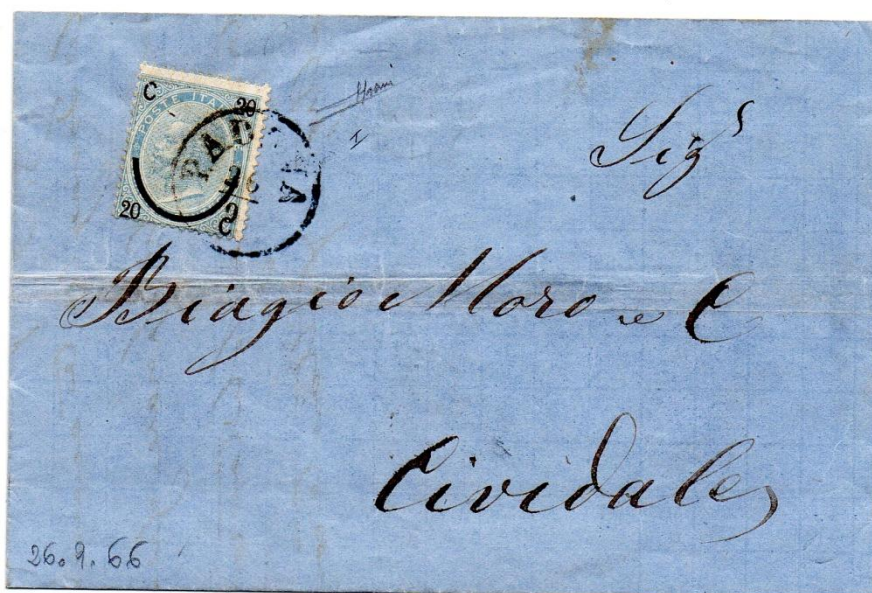 C 20
POSTE ITAL
20 C
PADOVA
26
9
Sigʳ
Biagio Moro e C
Cividale
26.9.66